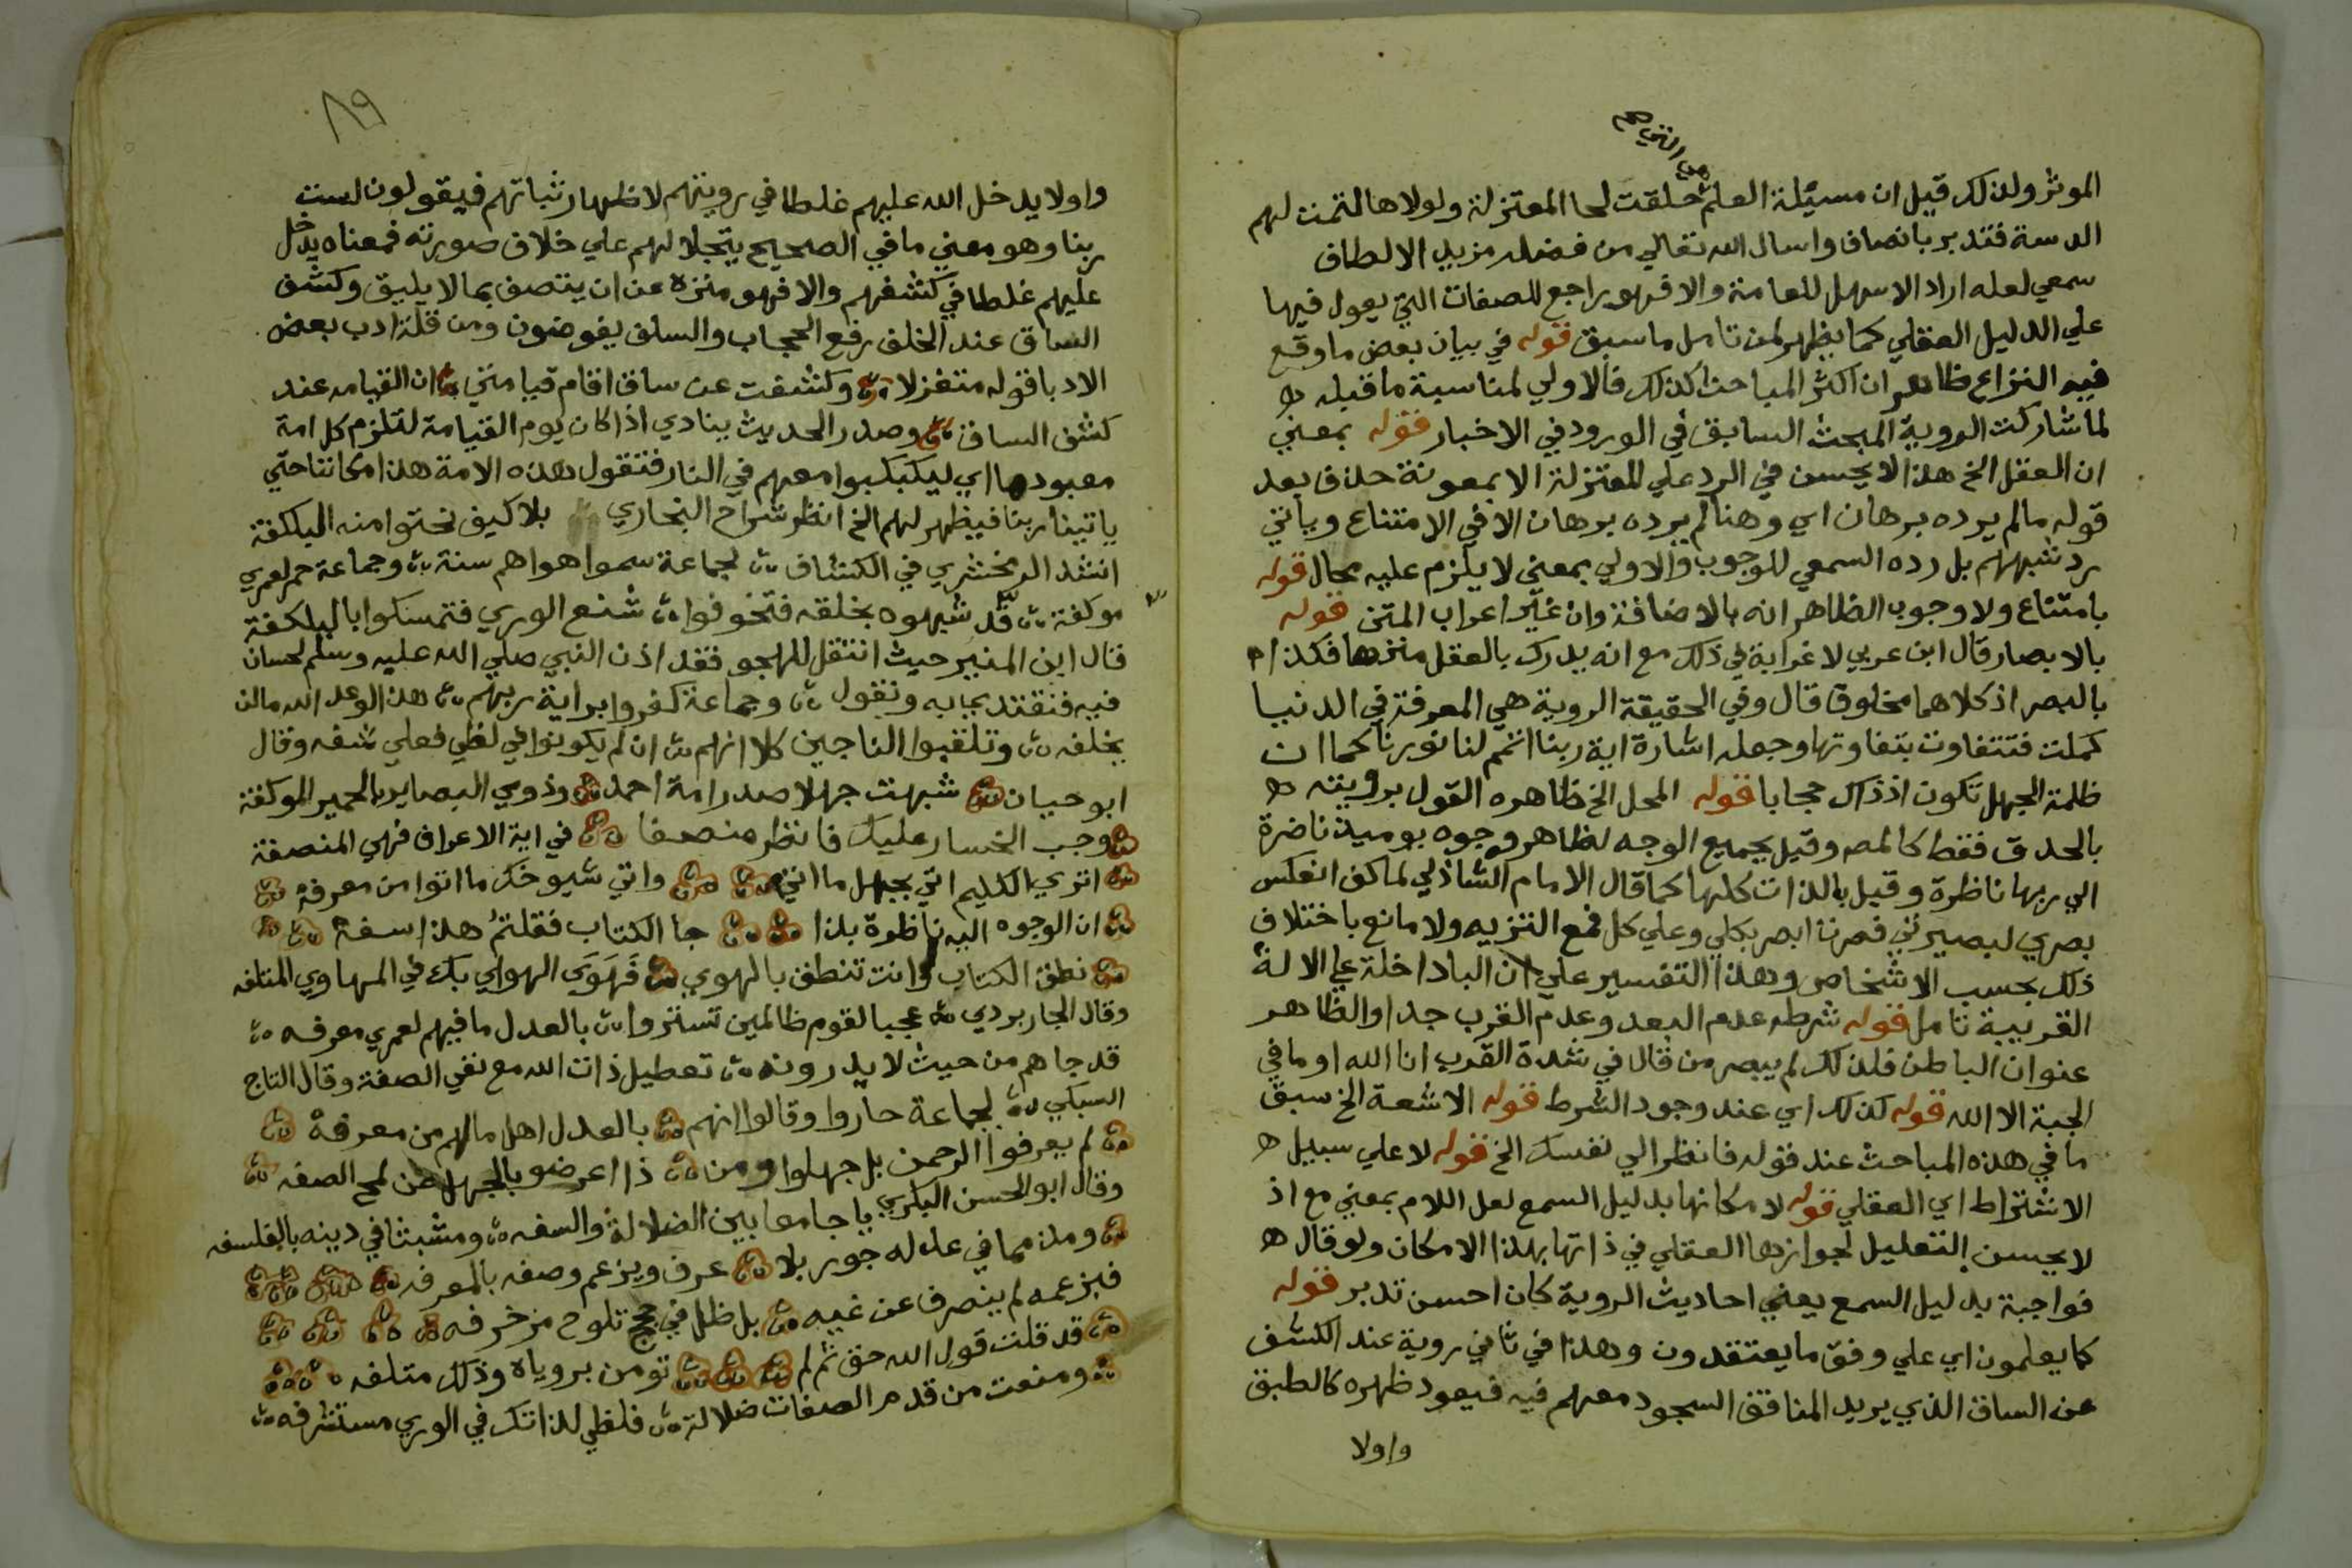 هي التي صح
الموثر ولذلك قيل ان مسيئلة العلم حلقت لحا المعتزلة ولولاها لتمت لهم
الدسة فتدبر بانصاف واسال الله تعالي من فضله مزيد الالطاف
سمعي لعله اراد الاسهل للعامة والا فهو راجع للصفات التي يعول فيها
علي الدليل العقلي كما يظهر لمن تامل ما سبق قوله في بيان بعض ما وقع
فيه النزاع ظاهر ان اكثر المباحث كذلك فالاولي لمناسبة ما قبله
لما شاركت الروية المبحث السابق في الورود في الاخبار قوله بمعني
ان العقل الخ هذا لا يحسن في الرد علي المعتزلة الا بمعونة حذف بعد
قوله ما لم يرده برهان اي وهنا لم يرده برهان الا في الامتناع وياتي
رد شبههم بل رده السمعي للوجوب والاولي بمعني لا يلزم عليه محال قوله
بامتناع ولا وجوب الظاهر انه بالاضافة وان غير اعراب المتن قوله
بالابصار قال ابن عربي لا غرابة في ذلك مع انه يدرك بالعقل منزها فكذا
بالبصر اذ كلاهما مخلوق قال وفي الحقيقة الروية هي المعرفة في الدنيا
كملت فتتفاوت بتفاوتها وجعله اشارة اية ربنا اتمم لنا نورنا كما ان
ظلمة الجهل تكون اذ ذاك حجابا قوله المحل الخ ظاهره القول برويته
بالحدق فقط كالمص وقيل بجميع الوجه لظاهر وجوه يوميذ ناضرة
الي ربها ناظرة وقيل بالذات كلها كما قال الامام الشاذلي لما كف انعكس
بصري لبصيرتي فصرت ابصر بكلي وعلي كل فمع التنزيه ولا مانع باختلاف
ذلك بحسب الاشخاص وهذا التفسير علي ان البا داخلة علي الالة
القريبة تامل قوله شرطه عدم البعد وعدم القرب جدا والظاهر
عنوان الباطن فلذلك لم يبصر من قال في شدة القرب انا الله او ما في
الجبة الا الله قوله كذلك اي عند وجود الشرط قوله الاشعة الخ سبق
ما في هذه المباحث عند قوله فانظر الي نفسك الخ قوله لا علي سبيل
الاشتراط اي العقلي قوله لامكانها بدليل السمع لعل اللام بمعني مع اذ
لا يحسن التعليل لجوازها العقلي في ذاتها بهذا الامكان ولو قال
فواجبة بدليل السمع يعني احاديث الروية كان احسن تدبر قوله
كما يعلمون اي علي وفق ما يعتقدون وهذا في ثاني روية عند الكشف
عن الساق الذي يريد المنافق السجود معهم فيه فيعود ظهره كالطبق
واولا
٨٩
واولا يدخل الله عليهم غلطا في رويتهم لاظهار ثباتهم فيقولون لست
ربنا وهو معني ما في الصحيح يتجلا لهم علي خلاف صورته فمعناه يدخل
عليهم غلطا في كشفهم والا فهو منزه عن ان يتصف بما لا يليق وكشف
الساق عند الخلف رفع الحجاب والسلف يفوضون ومن قلة ادب بعض
الادبا قوله متغزلا وكشفت عن ساق اقام قيامتي ان القيامه عند
كشف الساق وصدر الحديث ينادي اذا كان يوم القيامة لتلزم كل امة
معبودها اي ليكبكبوا معهم في النار فتقول هذه الامة هذا مكاننا حتي
ياتينا ربنا فيظهر لهم الخ انظر شراح البخاري بلا كيف نحتوا منه البلكفة
انشد الزمخشري في الكشاف لجماعة سموا هواهم سنة وجماعة حمر لعمري
موكفة قد شبهوه بخلقه فتخوفوا شنع الوري فتمسكوا بالبلكفة
قال ابن المنير حيث انتقل للهجو فقد اذن النبي صلي الله عليه وسلم لحسان
فيه فنقتد يجابه ونقول وجماعة كفروا براية ربهم هذا لوعد الله ما لن
يخلفه وتلقبوا الناجين كلا انهم ان لم يكونوا في لظي فعلي شفه وقال
ابو حيان شبهت جهلا صدر امة احمد وذوي البصاير بالحمير الموكفة
وجب الخسار عليك فانظر منصفا في اية الاعراف فهي المنصفة
اتري الكليم اتي بجهل ما اتي واتي شيوخك ما اتوا من معرفه
ان الوجوه اليه ناظرة بذا جا الكتاب فقلتم هذا سفه
نطق الكتاب وانت تنطق بالهوي فهوي الهوي بك في المهاوي المتلفه
وقال الجاربردي عجبا لقوم ظالمين تستروا بالعدل ما فيهم لعمري معرفه
قد جاهم من حيث لا يدرونه تعطيل ذات الله مع نفي الصفة وقال التاج
السبكي لجماعة حاروا وقالوا انهم بالعدل اهل ما لهم من معرفه
لم يعرفوا الرحمن بل جهلوا ومن ذا اعرضو بالجهل عن لمح الصفه
وقال ابو الحسن البكري يا جامعا بين الضلالة والسفه ومشبثا في دينه بالفلسفه
ومذمما في عدله جور بلا عرف ويزعم وصفه بالمعرفه
فبزعمه لم ينصرف عن غيه بل ظل في حجج تلوح مزخرفه
قد قلت قول الله حق ثم لم تومن بروياه وذلك متلفه
ومنعت من قدم الصفات ضلالة فلظي لذاتك في الوري مستشرفه